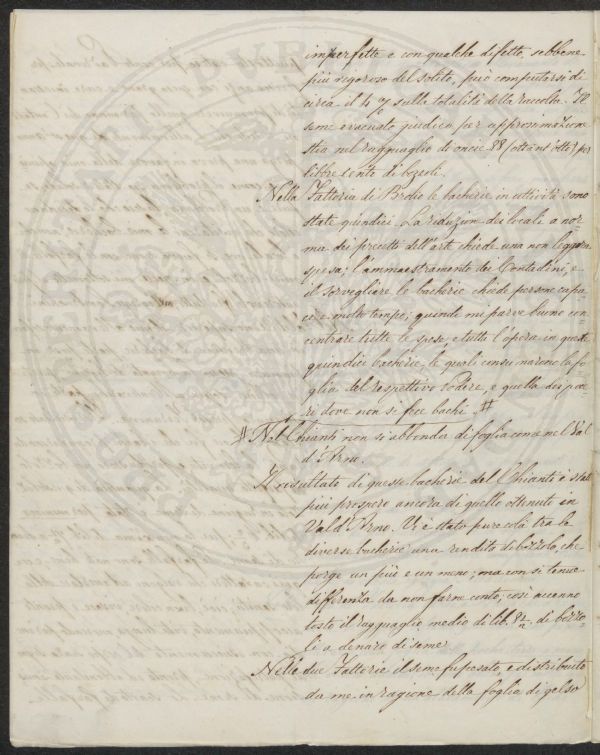 imperfette e con qualche difetto, sebbene
più rigoroso del solito, può computarsi di
circa il 4 % sulla totalità della raccolta. Il
seme avanzato giudico per approssimazione
stia nel ragguaglio di oncie 88 (ottant'otto) per
libbre cento di bozzoli.
Nella Fattoria di Brolio le bacherie in attività sono
state quindici. La riduzion dei locali a nor=
ma dei precetti dell'arte chiede una non leggera
spesa; l'ammaestramento dei Contadini, e
il sorvegliare le bacherie chiede persone capa=
ci e molto tempo; quindi mi parve buono con
centrare tutte le spese, e tutta l'opera in queste
quindici bacherie, le quali consumarono la fo
glia del respettivo Podere, e quella dei pode=
ri dove non si fece bachi. #
# Nel Chianti non si abbonda di foglia come nel Val
d'Arno.
Il resultato di queste bacherie del Chianti è stato
più prospero ancora di quello ottenuto in
Val d'Arno. Vi è stato pure colà tra le
diverse bacherie una rendita di bozzolo, che
porge un più e un meno; ma con sì tenue
differenza da non farne conto; così accenno
tosto il ragguaglio medio di lib. di bozzo=
li a denaro di seme.
Nelle due Fattorie il seme fu pesato, e distribuito
da me in ragione della foglia di gelso